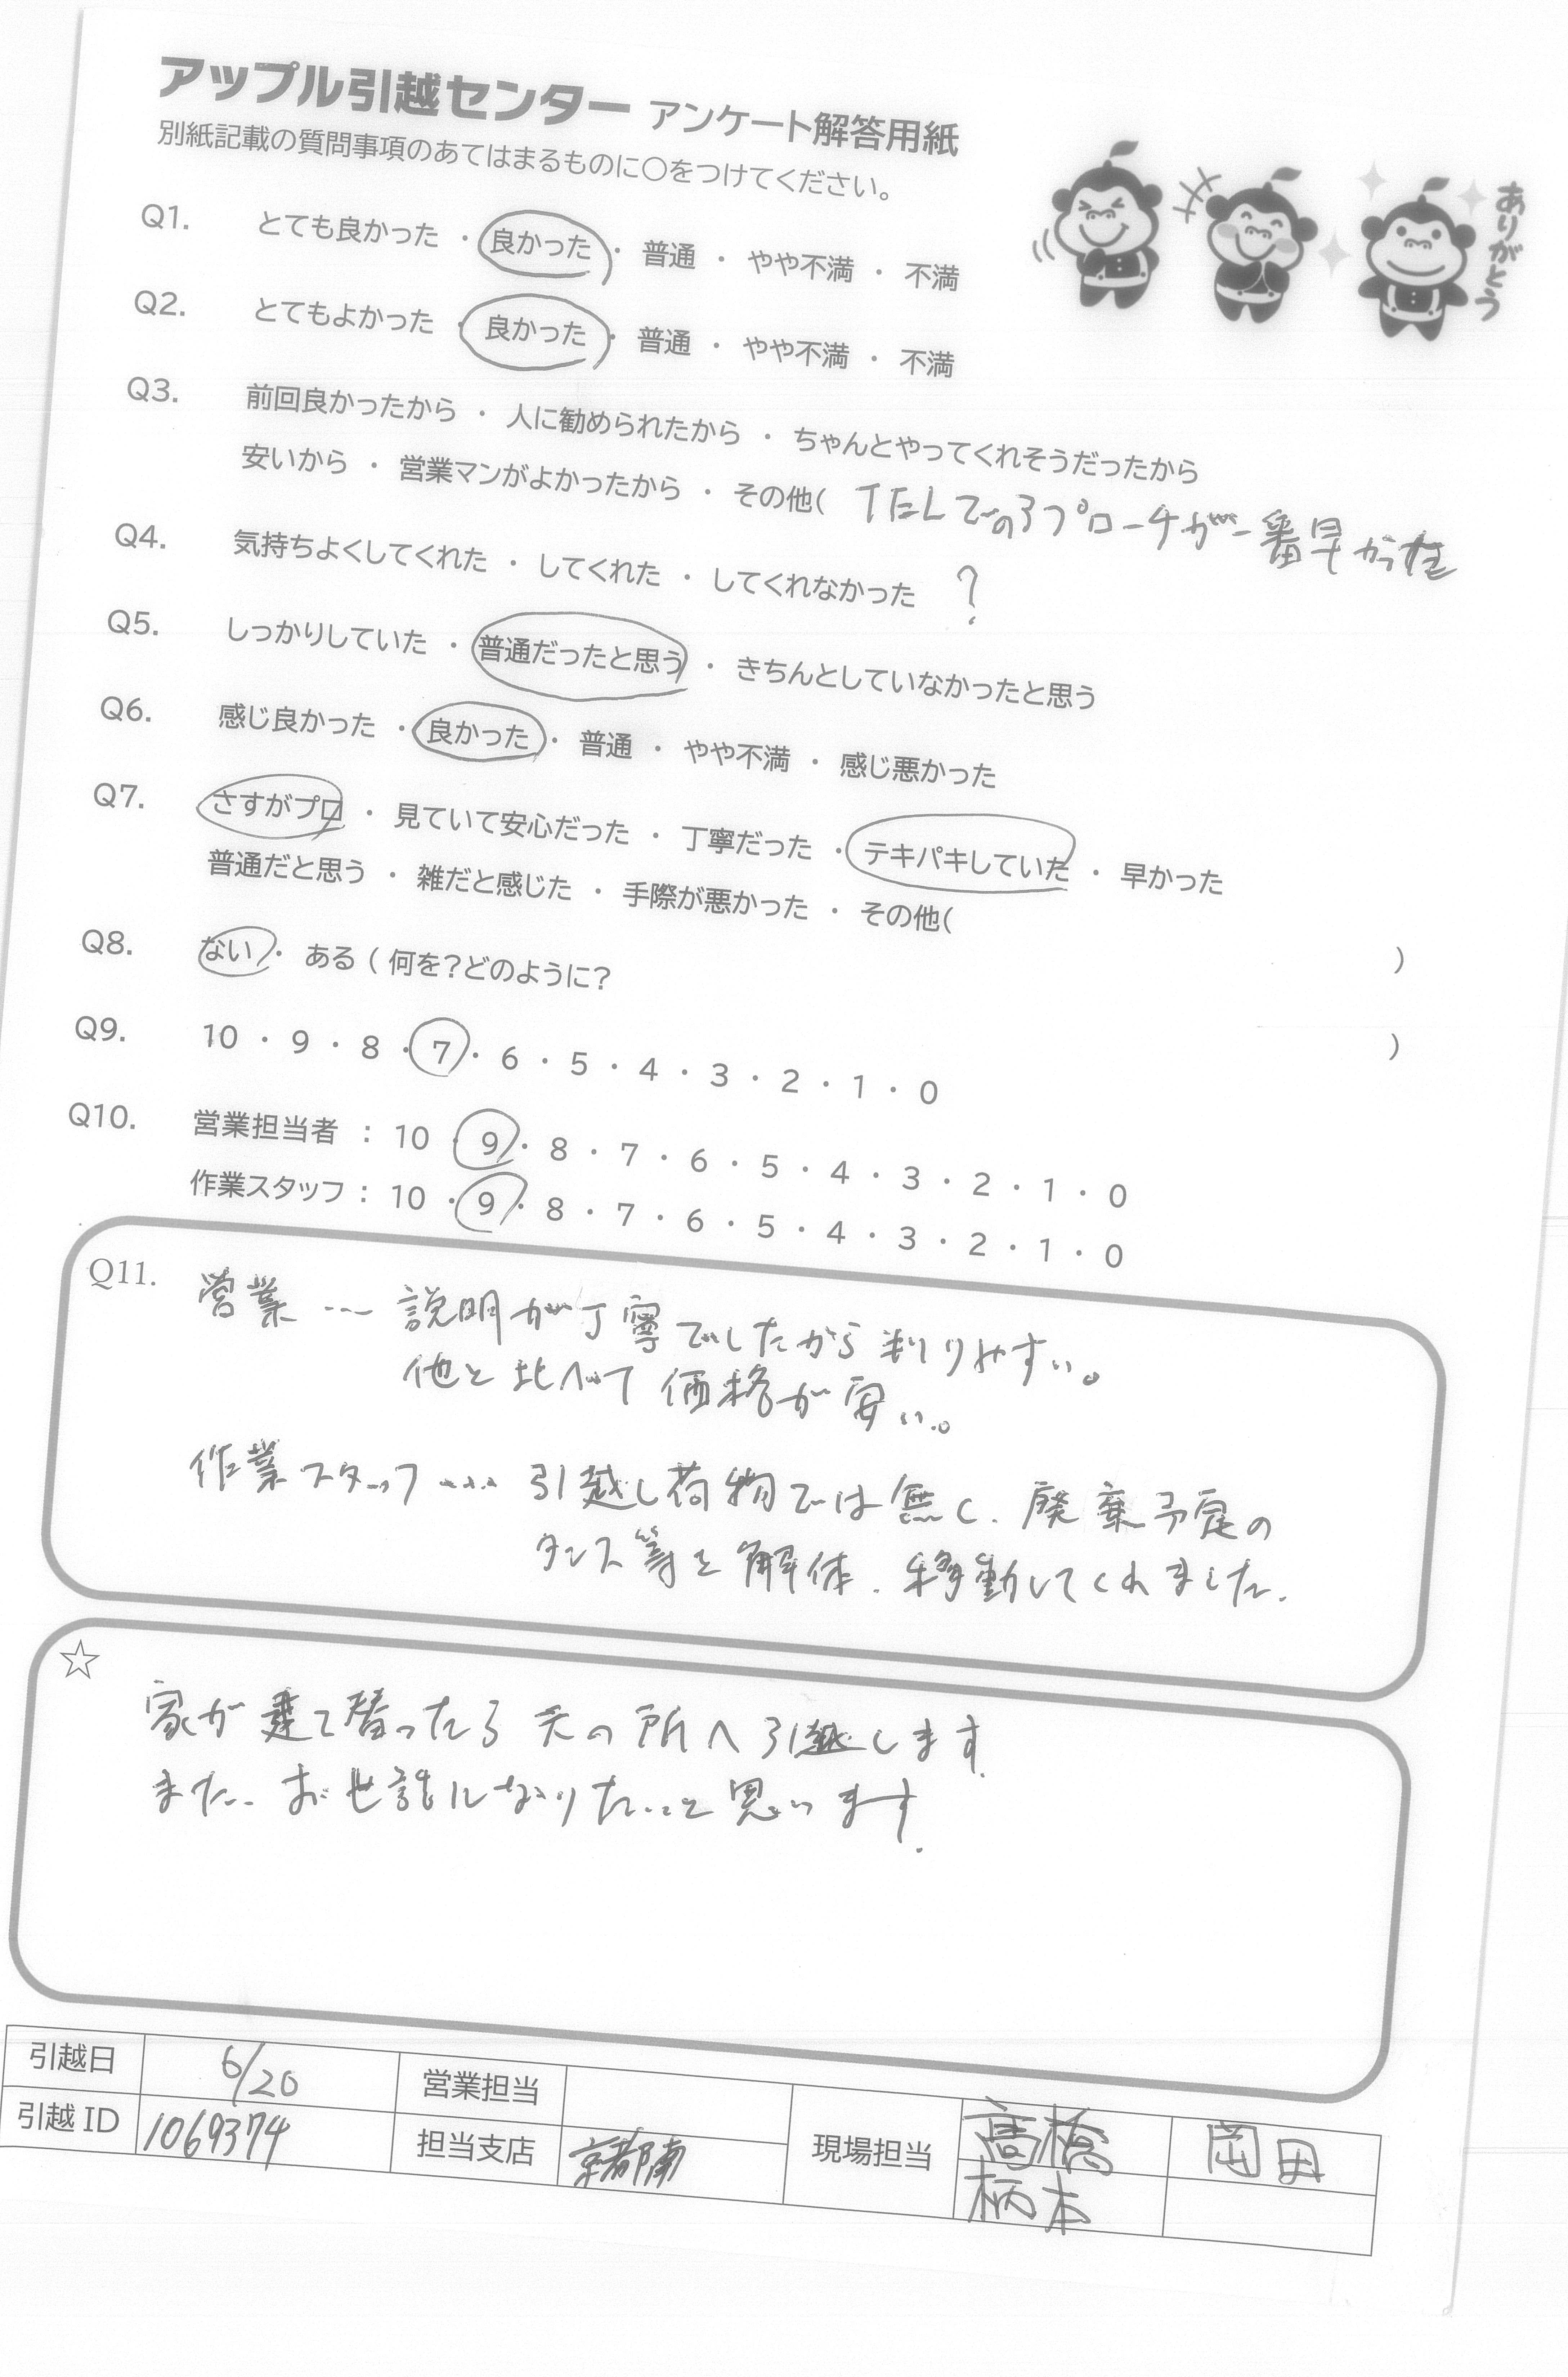 アップル引越センター アンケート解答用紙
別紙記載の質問事項のあてはまるものに○をつけてください。
ありがとう
Q1. とても良かった ・ 良かった ・ 普通 ・ やや不満 ・ 不満
Q2. とてもよかった ・ 良かった ・ 普通 ・ やや不満 ・ 不満
Q3. 前回良かったから ・ 人に勧められたから ・ ちゃんとやってくれそうだったから
安いから ・ 営業マンがよかったから ・ その他( TELでのアプローチが一番早かった
Q4. 気持ちよくしてくれた ・ してくれた ・ してくれなかった ?
Q5. しっかりしていた ・ 普通だったと思う ・ きちんとしていなかったと思う
Q6. 感じ良かった ・ 良かった ・ 普通 ・ やや不満 ・ 感じ悪かった
Q7. さすがプロ ・ 見ていて安心だった ・ 丁寧だった ・ テキパキしていた ・ 早かった
普通だと思う ・ 雑だと感じた ・ 手際が悪かった ・ その他( )
Q8. ない ・ ある ( 何を?どのように? )
Q9. 10 ・ 9 ・ 8 ・ 7 ・ 6 ・ 5 ・ 4 ・ 3 ・ 2 ・ 1 ・ 0
Q10. 営業担当者 : 10 ・ 9 ・ 8 ・ 7 ・ 6 ・ 5 ・ 4 ・ 3 ・ 2 ・ 1 ・ 0
作業スタッフ : 10 ・ 9 ・ 8 ・ 7 ・ 6 ・ 5 ・ 4 ・ 3 ・ 2 ・ 1 ・ 0
Q11. 営業 … 説明が丁寧でしたから判りやすい。
他と比べて価格が安い。
作業スタッフ … 引越し荷物では無く、廃棄予定の
タンス等を解体、移動してくれました.
☆
家が建て替ったら元の所へ引越します.
また、お世話になりたいと思います.
引越日 6/20 営業担当
引越ID 1069374 担当支店 京都南 現場担当 髙橋 岡田
柄本